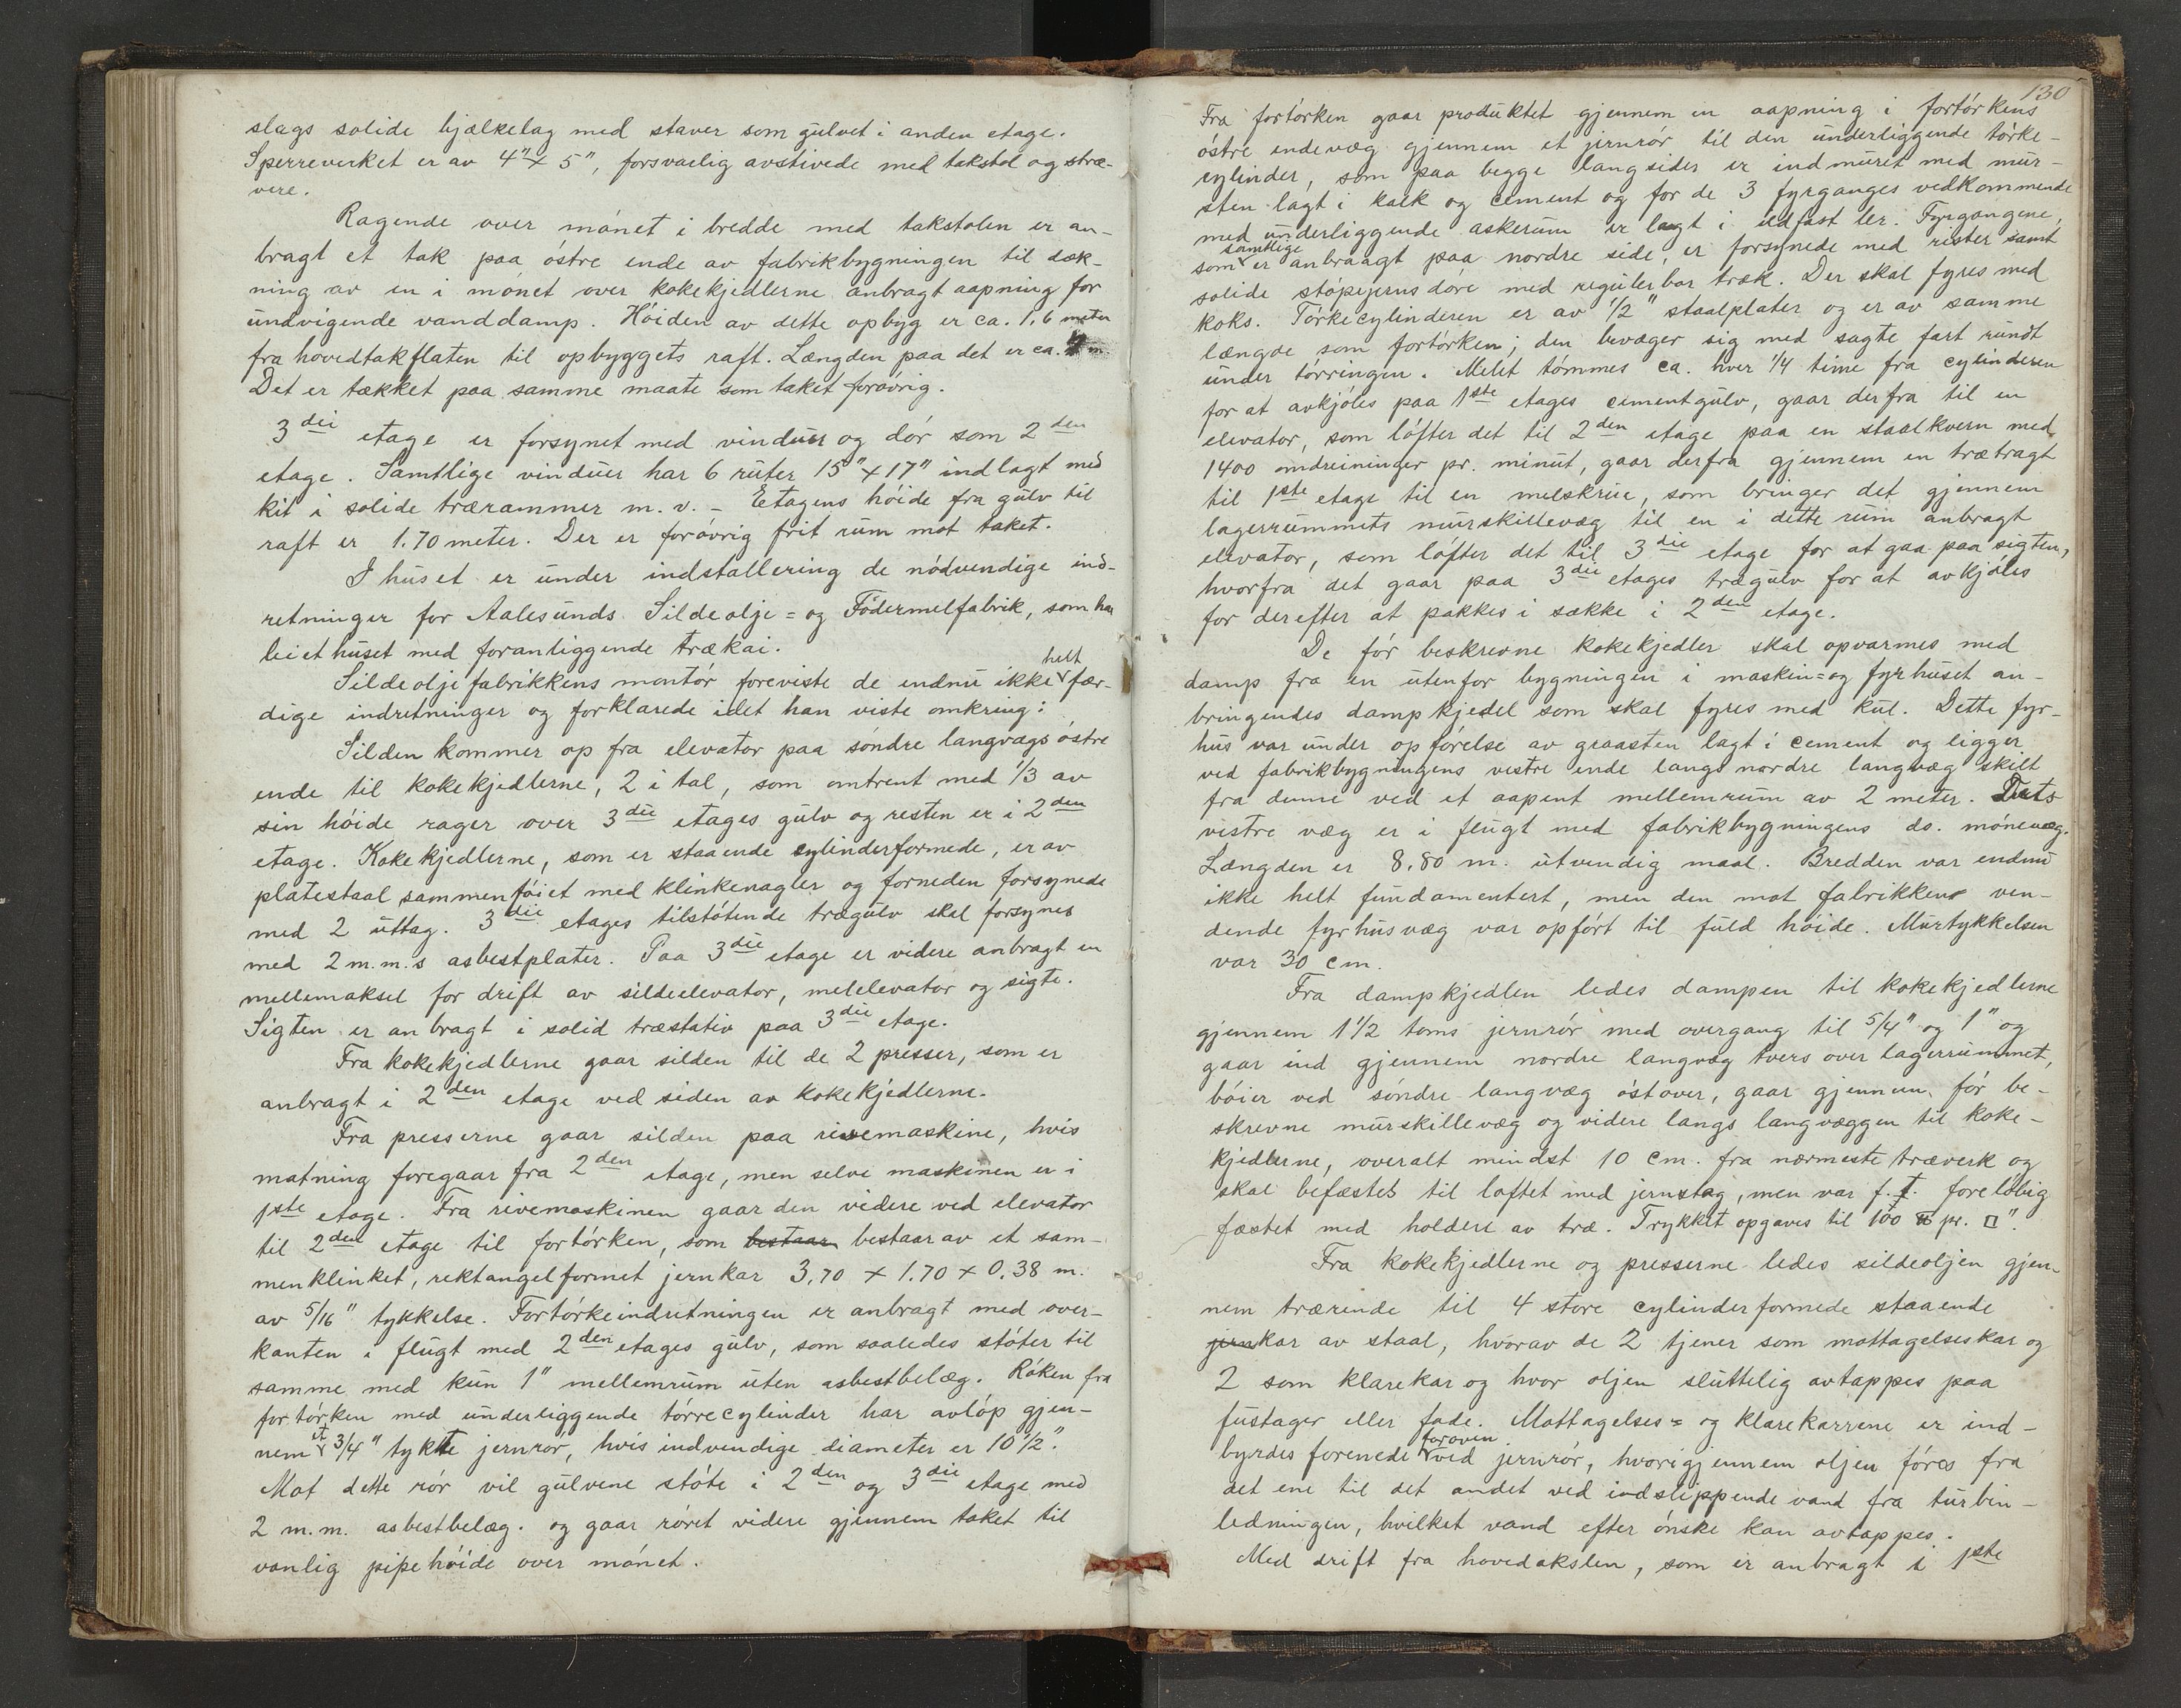 slags solide bjælkelag med staver som gulvet i anden etage.
Sperreverket er av 4" x 5", forsvarlig avstivede med takstol og stræ-
vere.
Ragende over mónet i bredde med takstolen er an-
bragt et tak paa óstre ende av fabrikbygningen til dæk-
ning av en i mónet over kokekjedlerne anbragt aapning for
undvigende vanddamp. Hóiden av dette opbyg er ca. 1,6 meter
fra hovedtakflaten til opbyggets raft. Længden paa det er ca. m.
Det er tækket paa samme maate som taket foróvrig.
3die etage er forsynet med vinduer og dór som 2den
etage. Samtlige vinduer har 6 ruter 15" x 17" indlagt med
kit i solide trærammer m. v. - Etagens hóide fra gulv til
raft er 1.70 meter. Der er foróvrig frit rum mot taket.
I huset er under indstallering de nódvendige ind-
retninger for Aalesunds Sildeolje= og Fódermelfabrik, som har
leiet huset med foranliggende trækai.
Sildeoljefabrikkens montór foreviste de endnu ikke helt fær-
dige indretninger og forklarede idet han viste omkring:
Silden kommer op fra elevator paa sóndre langvægs óstre
ende til kokekjedlerne, 2 i tal, som omtrent med 1/3 av
sin hóide rager over 3die etages gulv og resten er i 2den
etage. Kokekjedlerne, som er staaende cylinderformede, er av
platestaal sammenfóiet med klinkenagler og forneden forsynede
med 2 uttag. 3die etages tilstótende trægulv skal forsynes
med 2 m.m.s asbestplater. Paa 3die etage er videre anbragt en
mellemaksel for drift av sildeelevator, melelevator og sigte.
Sigten er anbragt i solid træstativ paa 3die etage.
Fra kokekjedlerne gaar silden til de 2 presser, som er
anbragt i 2den etage ved siden av kokekjedlerne.
Fra presserne gaar silden paa rivemaskine, hvis
matning foregaar fra 2den etage, men selve maskinen er i
1ste etage. Fra rivemaskinen gaar den videre ved elevator
til 2den etage til fortórken, som bestaar bestaar av et sam-
menklinket, rektangelformet jernkar 3,70 x 1.70 x 0.38 m.
av 5/16" tykkelse. Fortórkeindretningen er anbragt med over-
kanten i flugt med 2den etages gulv, som saaledes stóter til
samme med kun 1" mellemrum uten asbestbelæg. Róken fra
fortórken med underliggende tórrecylinder har avlóp gjen-
nem et 3/4" tykte jernrór, hvis indvendige diameter er 10 1/2".
Mot dette rór vil gulvene stóte i 2den og 3die etage med
2 m.m. asbestbelæg. og gaar róret videre gjennem taket til
vanlig pipehóide over mónet.
130
Fra fortórken gaar produktet gjennem en aapning i fortórkens
óstre endevæg gjennem et jernrór til den underliggende tórke-
cylinder, som paa begge langsider er indmuret med mur-
sten lagt i kalk og cement og for de 3 fyrganges vedkommende
med underliggende askerum er lagt i ildfast ler. Fyrgangene,
som samtlige er anbraagt paa nordre side, er forsynede med rister samt
solide stópejernsdóre med regulerbar træk. Der skal fyres med
koks. Tórkecylinderen er av 1/2" staalplater og er av samme
længde som fortórken; den bevæger sig med sagte fart rundt
under tórringen. Melet tómmes ca. hver 1/4 time fra cylinderen
for at avkjóles paa 1ste etages cementgulv, gaar derfra til en
elevator, som lófter det til 2den etage paa en staalkvern med
1400 omdreininger pr. minut, gaar derfra gjennem en trætragt
til 1ste etage til en melskrue, som bringer det gjennem
lagerrummets murskillevæg til en i dette rum anbragt
elevator, som lófter det til 3die etage for at gaa paa sigten,
hvorfra det gaar paa 3die etages trægulv for at avkjóles
for derefter at pakkes i sække i 2den etage.
De fór beskrevne kokekjedler skal opvarmes med
damp fra en utenfor bygningen i maskin= og fyrhuset an-
bringendes dampkjedel som skal fyres med kul. Dette fyr-
hus var under opfórelse av graasten lagt i cement og ligger
ved fabrikbygningens vestre ende langs nordre langvæg skilt
fra denne ved et aapent mellemrum av 2 meter. Dets
vestre væg er i flugt med fabrikbygningens do. mónevæg.
Længden er 8.80 m. utvendig maal. Bredden var endnu
ikke helt fundamentert, men den mot fabrikken ven-
dende fyrhusvæg var opfórt til fuld hóide. Murtykkelsen
var 30 cm.
Fra dampkjedlen ledes dampen til kokekjedlerne
gjennem 1 1/2 toms jernrór med overgang til 5/4" og 1" og
gaar ind gjennem nordre langvæg tvers over lagerrummet,
bóier ved sóndre langvæg óstover, gaar gjennem fór be-
skrevne murskillevæg og videre langs langvæggen til koke-
kjedlerne, overalt mindst 10 cm. fra nærmeste træverk og
skal befæstes til loftet med jernstag, men var f. t. forelóbig
fæstet med holdere av træ. Trykket opgaves til 100 ℔ pr. □".
Fra kokekjedlerne og presserne ledes sildeoljen gjen-
nem trærende til 4 store cylinderformede staaende
jernkar av staal, hvorav de 2 tjener som mottagelseskar og
2 som klarekar og hvor oljen sluttelig avtappes paa
fustager eller fade. Mottagelses= og klarekarrene er ind-
byrdes forenede foroven ved jernrór, hvorigjennem oljen fóres fra
det ene til det andet ved indslippende vand fra turbin-
ledningen, hvilket vand efter ónske kan avtappes.
Med drift fra hovedakslen, som er anbragt i 1ste